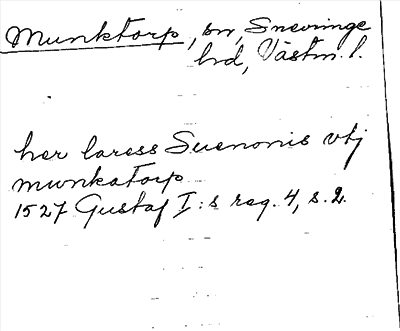 Munktorp, sn, Snevringe
hd, Västm. l.
her laress Suenonis vtj
munkatorp
1527 Gustaf I:s reg. 4, s. 2.